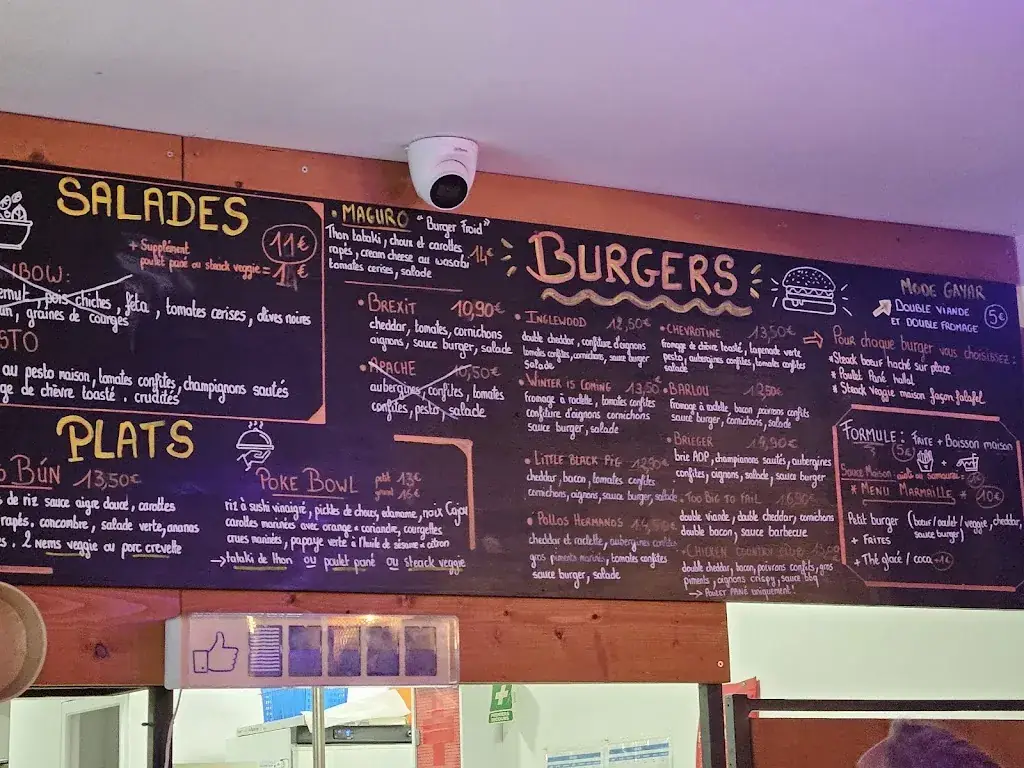 SALADES
+ Supplément
poulet pané ou steack veggie = 1€
11€
BOW:
pois chiches, féta, tomates cerises, olives noires
graines de courges
STO
au pesto maison, tomates confites, champignons sautés
ge de chèvre toasté. crudités
PLATS
BÚN 13,50€
de riz sauce aigre douce, carottes
rapés. concombre, salade verte, ananas
. 2 nems veggie ou porc crevette
POKE BOWL
petit 13€
grand 16€
riz à sushi vinaigré, pickles de choux, edamame, noix Cajou
carottes marinées avec orange + coriandre, courgettes
crues marinées, papaye verte à l'huile de sésame + citron
→ tataki de thon ou poulet pané ou steack veggie
• MAGURO "Burger Froid"
Thon tataki, choux et carottes
rapés, cream cheese au wasabi
tomates cerises, salade
14€
BURGERS
• BREXIT 10,90€
cheddar, tomates, cornichons
oignons, sauce burger, salade
• APACHE 10,50€
aubergines confites, tomates
confites, pesto, salade
• INGLEWOOD 12,50€
double cheddar, confiture d'oignons
tomates confites, cornichons, sauce burger
salade
• WINTER IS COMING 13,50€
fromage à raclette, tomates confites
confiture d'oignons cornichons
sauce burger, salade
• LITTLE BLACK PIG 12,90€
cheddar, bacon, tomates confites
cornichons, oignons, sauce burger, salade
• POLLOS HERMANOS
cheddar et raclette, aubergines confites
gros piments marinés, tomates confites
sauce burger, salade
• CHEVROTINE 13,50€
fromage de chèvre toasté, tapenade verte
pesto, aubergines confites, tomates confites
salade
• BARLOU 12,50€
fromage à raclette, bacon, poivrons confits
sauce burger, cornichons, salade
• BRIEGER 14,90€
brie AOP, champignons sautés, aubergines
confites, oignons, salade, sauce burger
• TOO BIG TO FAIL 16,50€
double viande, double cheddar, cornichons
double bacon, sauce barbecue
• CHICKEN COUNTRY CLUB
double cheddar, bacon, poivrons confits, gros
piments, oignons crispy, sauce bbq
→ POULET PANÉ uniquement!
MODE GAYAR
DOUBLE VIANDE
ET DOUBLE FROMAGE
5€
Pour chaque burger vous choisissez :
* Steack bœuf haché sur place
* Poulet Pané halal
* Steack Veggie maison façon falafel
FORMULE: FRITE + Boisson maison
5€
* MENU MARMAILLE *
10€
Petit burger (bœuf/poulet/veggie, cheddar,
sauce burger)
+ FRITES
+ Thé glacé / coca +1€